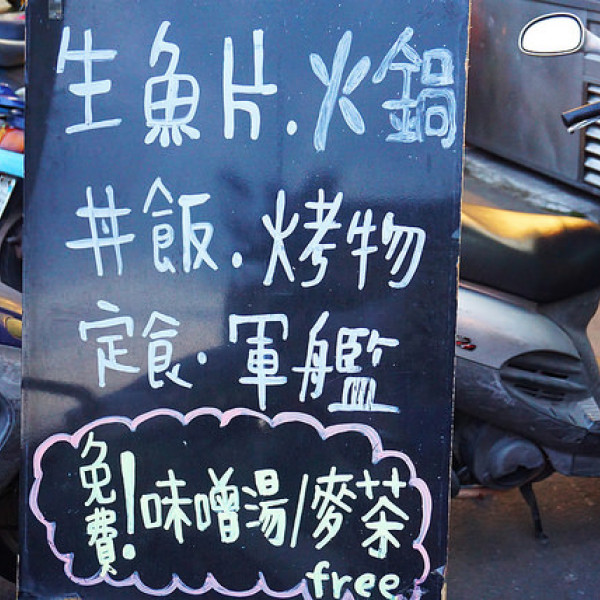 生魚片.火鍋
丼飯.烤物
定食.軍艦
免費!味噌湯/麥茶
free